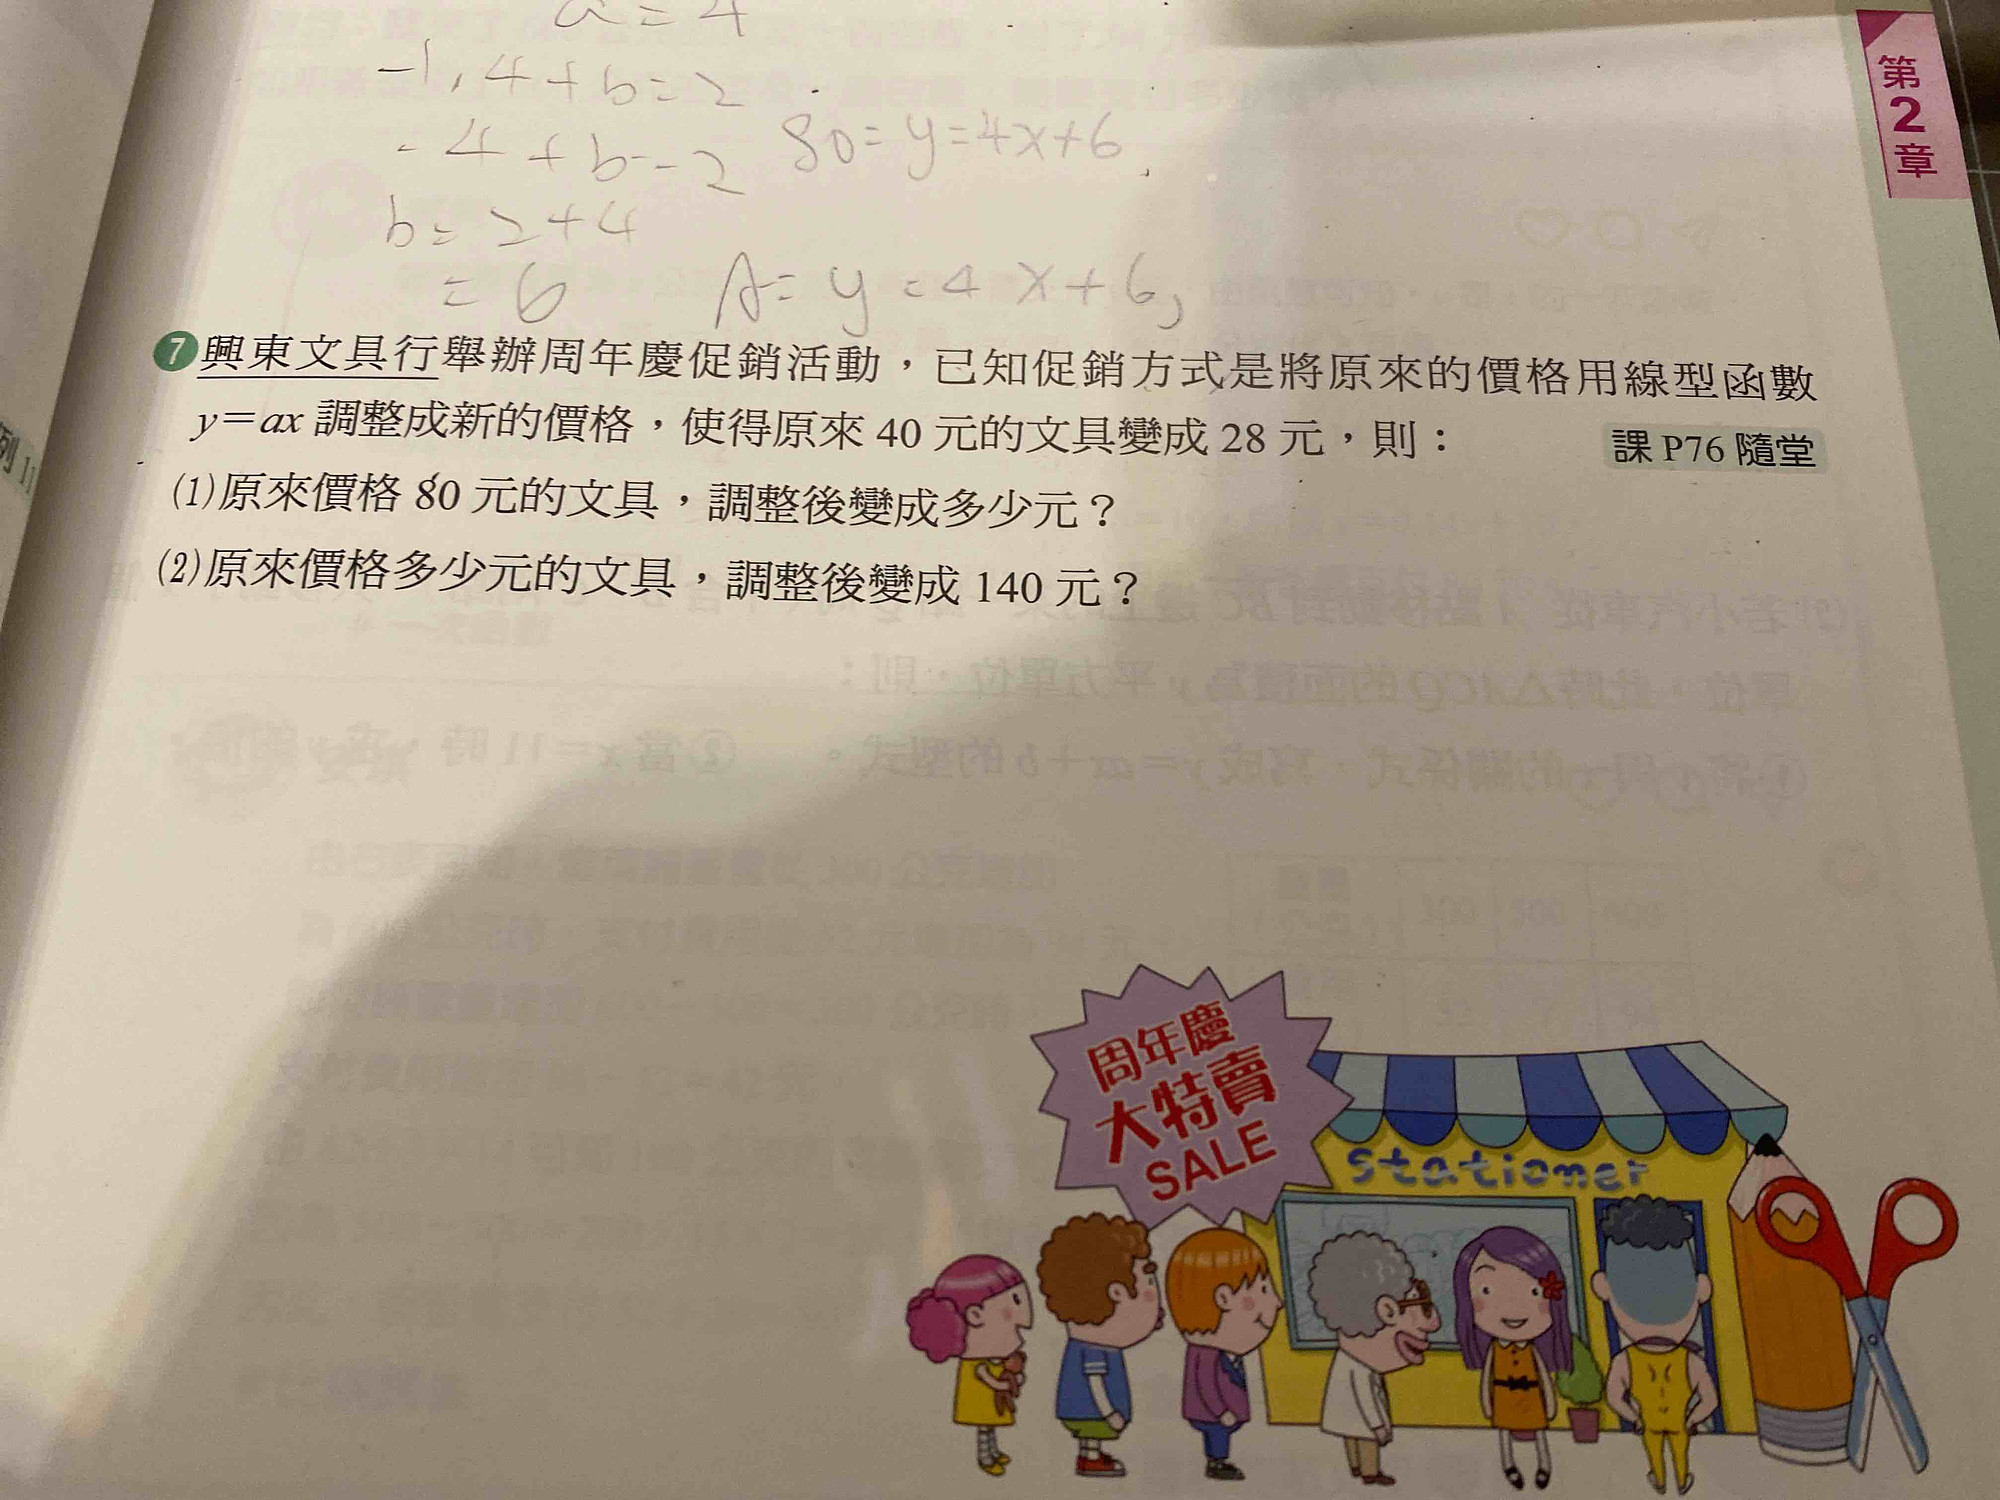 a = 4
-1,4+b=2
-4+b=2 80=y=4x+6
b=2+4
=6 A=y=4x+6,
第2章
7 興東文具行舉辦周年慶促銷活動，已知促銷方式是將原來的價格用線型函數
y＝ax 調整成新的價格，使得原來 40 元的文具變成 28 元，則： 課 P76 隨堂
(1)原來價格 80 元的文具，調整後變成多少元？
(2)原來價格多少元的文具，調整後變成 140 元？
例 11
周年慶
大特賣
SALE
Stationer